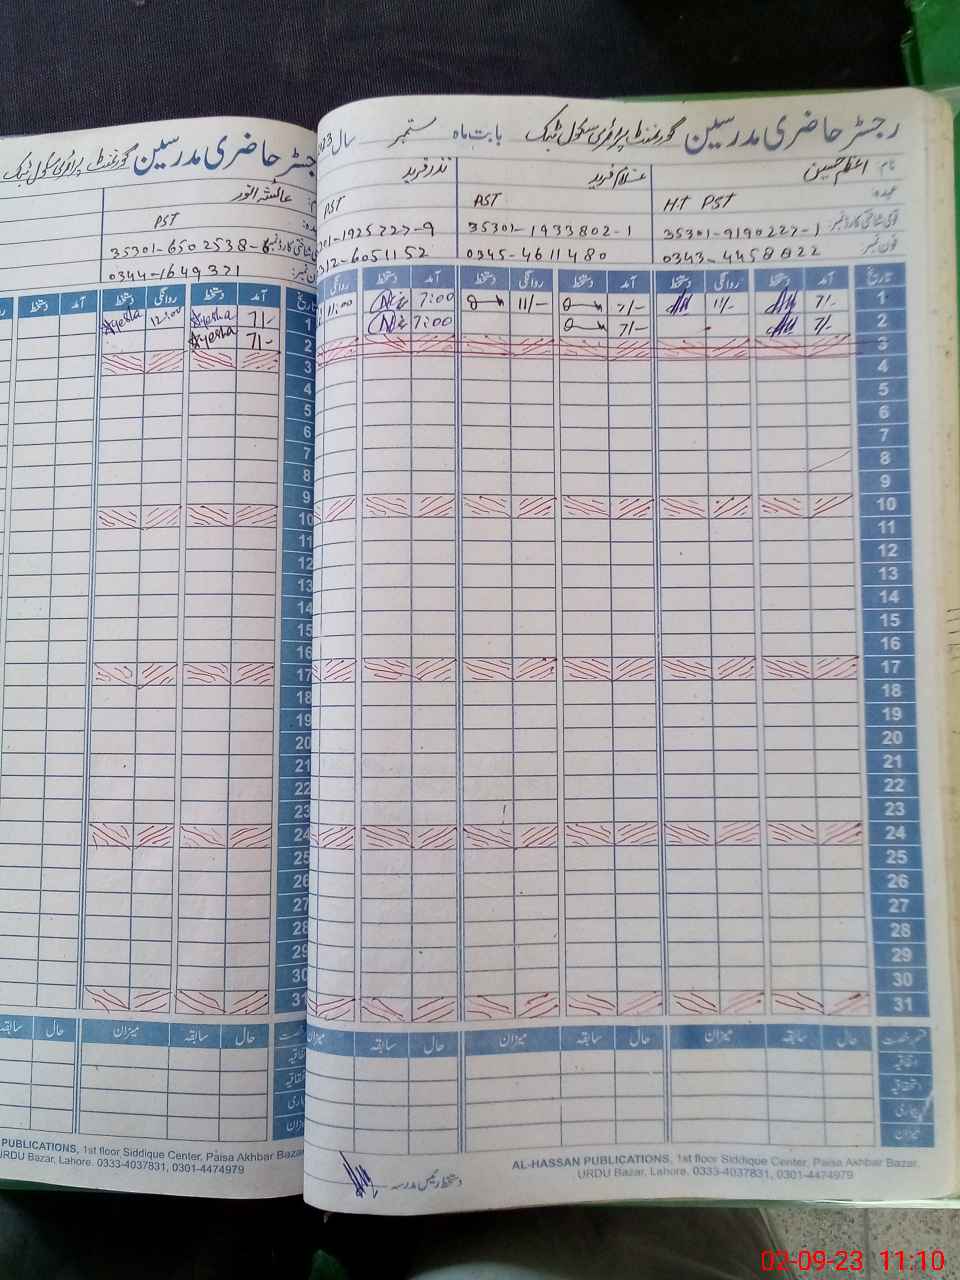 رجسٹر حاضری مدرسین گورنمنٹ پرائمری سکول ٹبک بابت ماہ ستمبر سال
نام اعظم حسین
غلام فرید
نذر فرید
عہدہ HT PST
PST
PST
قومی شناختی کارڈ نمبر 35301-9190227-1
35301-1933802-1
301-1925727-9
فون نمبر 0343-4458822
0345-4611480
312-6051152
تاریخ آمد دستخط روانگی دستخط آمد دستخط روانگی دستخط آمد دستخط روانگی
1 7/- 11/- 7/- 11/- 7:00 11:00
2 7/- 7/- 7:00
3
4
5
6
7
8
9
10
11
12
13
14
15
16
17
18
19
20
21
22
23
24
25
26
27
28
29
30
31
حال سابقہ میزان حال سابقہ میزان حال سابقہ میزان
اتفاقیہ
استحقاقیہ
بیماری
میزان
دستخط رئیس مدرسہ
AL-HASSAN PUBLICATIONS, 1st floor Siddique Center, Paisa Akhbar Bazar,
URDU Bazar, Lahore. 0333-4037831, 0301-4474979
جسٹر حاضری مدرسین گورنمنٹ پرائمری سکول ٹبک
عائشہ انور
PST
شناختی کارڈ نمبر 35301-6502538-6
نمبر 0344-1649371
تاریخ آمد دستخط روانگی دستخط آمد دستخط
1 7/- Ayesha 12:00 Ayesha
2 7/- Ayesha
3
4
5
6
7
8
9
10
11
12
13
14
15
16
17
18
19
20
21
22
23
24
25
26
27
28
29
30
31
حال سابقہ میزان حال سابقہ
PUBLICATIONS, 1st floor Siddique Center, Paisa Akhbar Bazar
URDU Bazar, Lahore. 0333-4037831, 0301-4474979
02-09-23 11:10